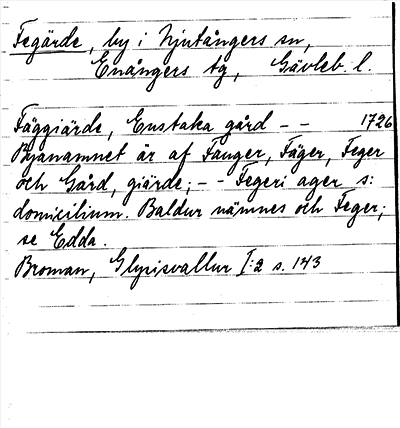 Fegärde, by i Njutångers sn,
Enångers tg, Gävleb. l.
Fäggiärde, Enstaka gård - - 1726
Byanamnet är af Fauger, Fäger, Feger
och Gård, giärde; - - Fegeri ager s:
domicilium. Baldur nämnes och Feger;
se Edda.
Broman, Glysisvallur I:2 s. 143